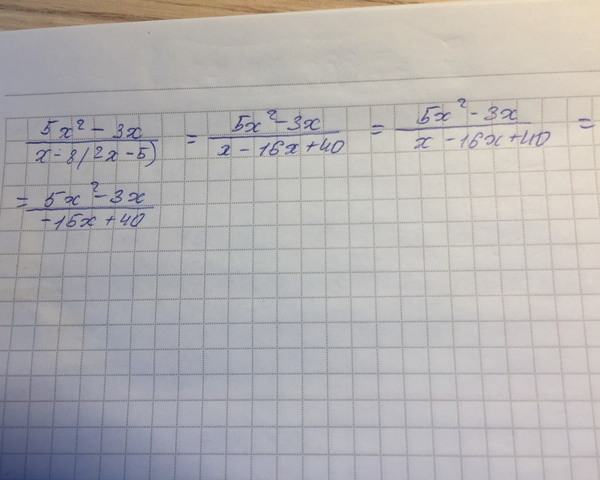 (5x² - 3x)/(x - 8(2x - 5)) = (5x² - 3x)/(x - 16x + 40) = (5x² - 3x)/(x - 16x + 40) =
= (5x² - 3x)/(-15x + 40)